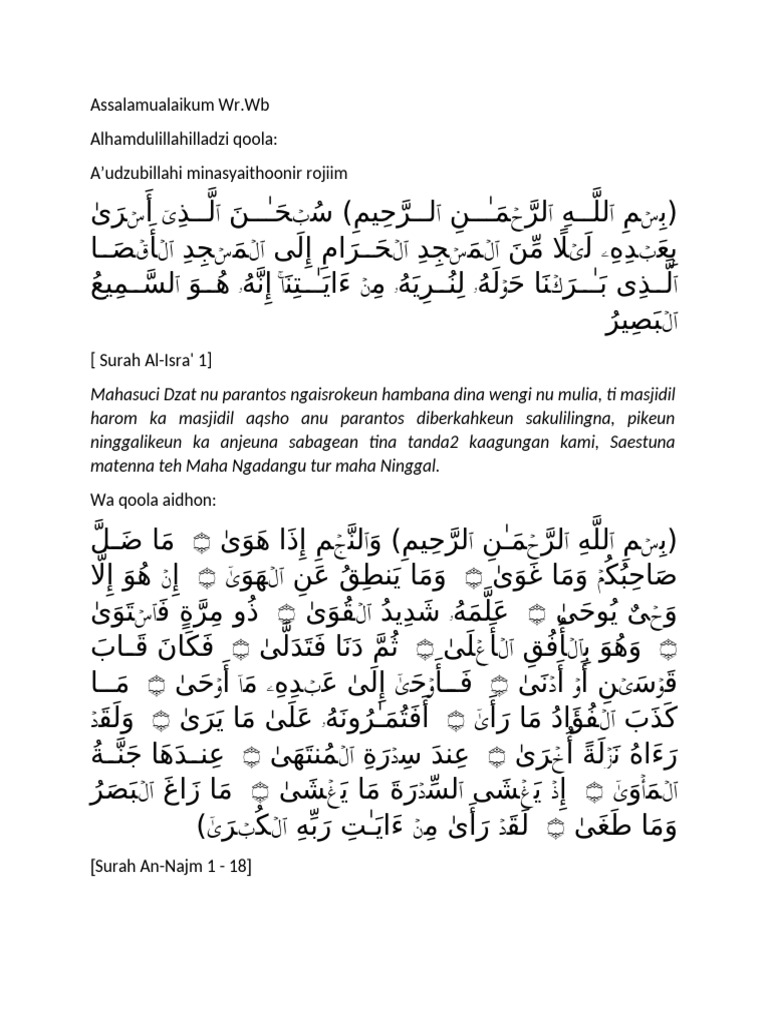 Assalamualaikum Wr.Wb
Alhamdulillahilladzi qoola:
A’udzubillahi minasyaithoonir rojiim
(بِسۡمِ ٱللَّـــهِ ٱلرَّحۡمَـٰـــنِ ٱلـــرَّحِيمِ) سُبۡحَـٰـــنَ ٱلَّـــذِىٓ أَسۡرَىٰ
بِعَبۡدِهِۦ لَيۡلࣰا مِّنَ ٱلۡمَسۡجِدِ ٱلۡحَـــرَامِ إِلَى ٱلۡمَسۡجِدِ ٱلۡأَقۡصَـــا
ٱلَّـــذِى بَـٰـــرَكۡنَا حَوۡلَهُۥ لِنُـــرِيَهُۥ مِنۡ ءَايَـٰـــتِنَاۤۚ إِنَّهُۥ هُـــوَ ٱلسَّـــمِيعُ
ٱلۡبَصِيرُ
[ Surah Al-Isra' 1]
Mahasuci Dzat nu parantos ngaisrokeun hambana dina wengi nu mulia, ti masjidil
harom ka masjidil aqsho anu parantos diberkahkeun sakulilingna, pikeun
ninggalikeun ka anjeuna sabagean tina tanda2 kaagungan kami, Saestuna
matenna teh Maha Ngadangu tur maha Ninggal.
Wa qoola aidhon:
(بِسۡمِ ٱللَّهِ ٱلرَّحۡمَـٰنِ ٱلرَّحِيمِ) وَٱلنَّجۡمِ إِذَا هَوَىٰ ۝ مَا ضَـــلَّ
صَاحِبُكُمۡ وَمَا غَوَىٰ ۝ وَمَا يَنطِقُ عَنِ ٱلۡهَوَىٰۤ ۝ إِنۡ هُوَ إِلَّا
وَحۡىࣱ يُوحَىٰ ۝ عَلَّمَهُۥ شَدِيدُ ٱلۡقُوَىٰ ۝ ذُو مِرَّةࣲ فَٱسۡتَوَىٰ
۝ وَهُوَ بِٱلۡأُفُقِ ٱلۡأَعۡلَىٰ ۝ ثُمَّ دَنَا فَتَدَلَّىٰ ۝ فَكَانَ قَـــابَ
قَوۡسَيۡنِ أَوۡ أَدۡنَىٰ ۝ فَـــأَوۡحَىٰۤ إِلَىٰ عَبۡدِهِۦ مَاۤ أَوۡحَىٰ ۝ مَـــا
كَذَبَ ٱلۡفُؤَادُ مَا رَأَىٰۤ ۝ أَفَتُمَـــٰرُونَهُۥ عَلَىٰ مَا يَرَىٰ ۝ وَلَقَدۡ
رَءَاهُ نَزۡلَةً أُخۡرَىٰ ۝ عِندَ سِدۡرَةِ ٱلۡمُنتَهَىٰ ۝ عِنـــدَهَا جَنَّـــةُ
ٱلۡمَأۡوَىٰۤ ۝ إِذۡ يَغۡشَى ٱلسِّدۡرَةَ مَا يَغۡشَىٰ ۝ مَا زَاغَ ٱلۡبَصَرُ
وَمَا طَغَىٰ ۝ لَقَدۡ رَأَىٰ مِنۡ ءَايَـٰتِ رَبِّهِ ٱلۡكُبۡرَىٰۤ)
[Surah An-Najm 1 - 18]